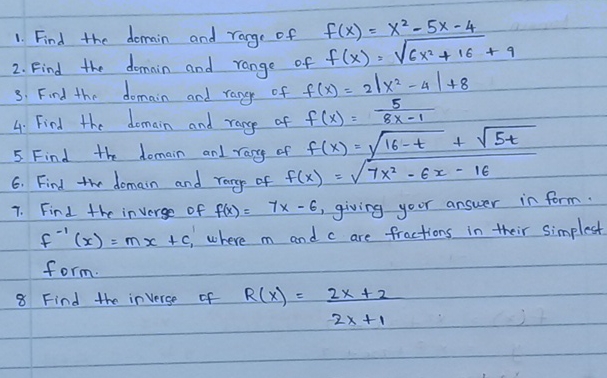 1. Find the domain and range of f(x) = x² - 5x - 4
2. Find the domain and range of f(x) = √(6x² + 16) + 9
3. Find the domain and range of f(x) = 2|x² - 4| + 8
4. Find the domain and range of f(x) = 5/(8x - 1)
5. Find the domain and range of f(x) = √(16 - t) + √(5t)
6. Find the domain and range of f(x) = √(7x² - 6x - 16)
7. Find the inverse of f(x) = 7x - 6, giving your answer in form.
f⁻¹(x) = mx + c, where m and c are fractions in their simplest
form.
8 Find the inverse of R(x) = (2x + 2)/(2x + 1)